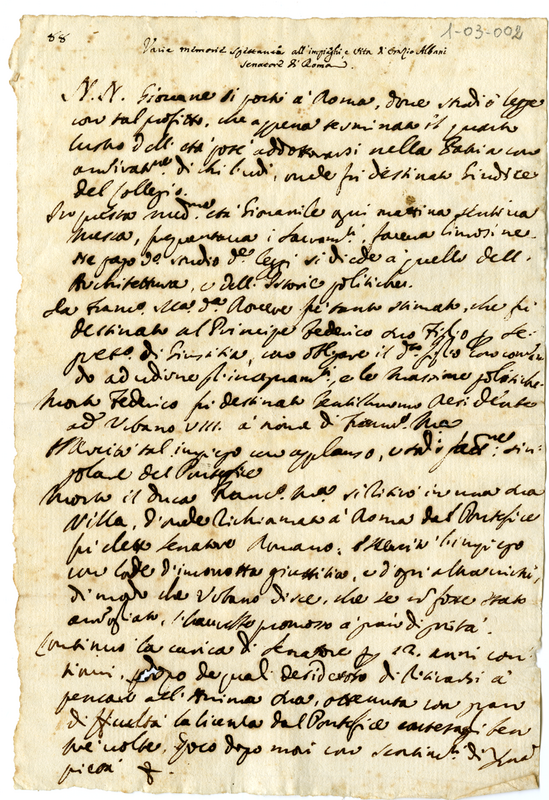 1-03-002
88
Varie memorie spettanti all'impieghi e vita d'Orazio Albani
Senatore di Roma.
N. N. Giovane si portò à Roma, dove studiò legge
con tal profitto, che appena terminato il quarto
lustro dell'età potè addottorarsi nella Patria con
di chi l'udì, onde fu destinato Giudice
del Collegio.
In questa età Giovanile ogni mattina sentiva
Messa, frequentava i faceva limosine.
studio leggi si diede a quello dell'
Architettura, e dell'Istorie politiche.
Da Franc.º M.ª Rovere fù tanto stimato, che fù
destinato al Principe Federico suo Figlio p
di Giustitia, con obligare il figlio
do ad udirne gl' e le Massime politiche.
Morto Federico fù destinato Gentilhuomo Residente
ad Urbano VIII. à nome di Franc.º M.ª
Esercitò tal impiego con applauso, e sin-
golare del Pontefice
Morto il Duca Franc.º M.ª si ritirò in una sua
Villa, d'onde richiamato à Roma dal Pontefice
fù eletto Senatore Romano: Esercitò l'impiego
con lode d'incorrotta giustitia, e d'ogn'altra virtù,
di modo che Urbano disse, che se non fosse stato
l'haverebbe promosso à gradi di
Continuò la carica di Senatore p 12. anni con-
tinui, dopo de quali desideroso di ritirarsi à
pensare all'Anima sua, ottenuta con gran
difficultà la licenza dal Pontefice
volte, poco dopo morì con di
pietà